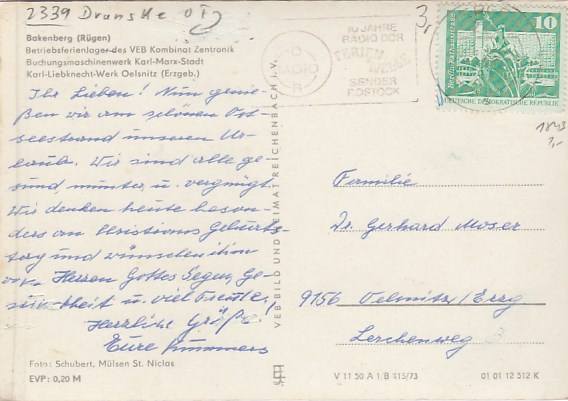 2339 Dranske OT
Bakenberg (Rügen)
Betriebsferienlager des VEB Kombinat Zentronik
Buchungsmaschinenwerk Karl-Marx-Stadt
Karl-Liebknecht-Werk Oelsnitz (Erzgeb.)
Ihr Lieben! Nun genie-
ßen wir am schönen Ost-
seestrand unseren Ur-
laub. Wir sind alle ge-
sund munter, u. vergnügt.
Wir denken heute beson-
ders an Geburts-
tag und wünschen ihm
von Herzen Gottes Segen, Ge-
sundheit u. viel Freude!
Herzliche Grüße!
Eure
Foto: Schubert, Mülsen St. Niclas
EVP: 0,20 M
VEB BILD UND HEIMAT REICHENBACH I. V.
10 JAHRE
RADIO DDR
FERIEN
WELLE
SENDER
ROSTOCK
3,-
10
DEUTSCHE DEMOKRATISCHE REPUBLIK
1843
Familie
Dr. Gerhard Moser
9156 Oelsnitz/Erzg
Lerchenweg
V 11 50 A 1/B 415/73
01 01 12 512 K